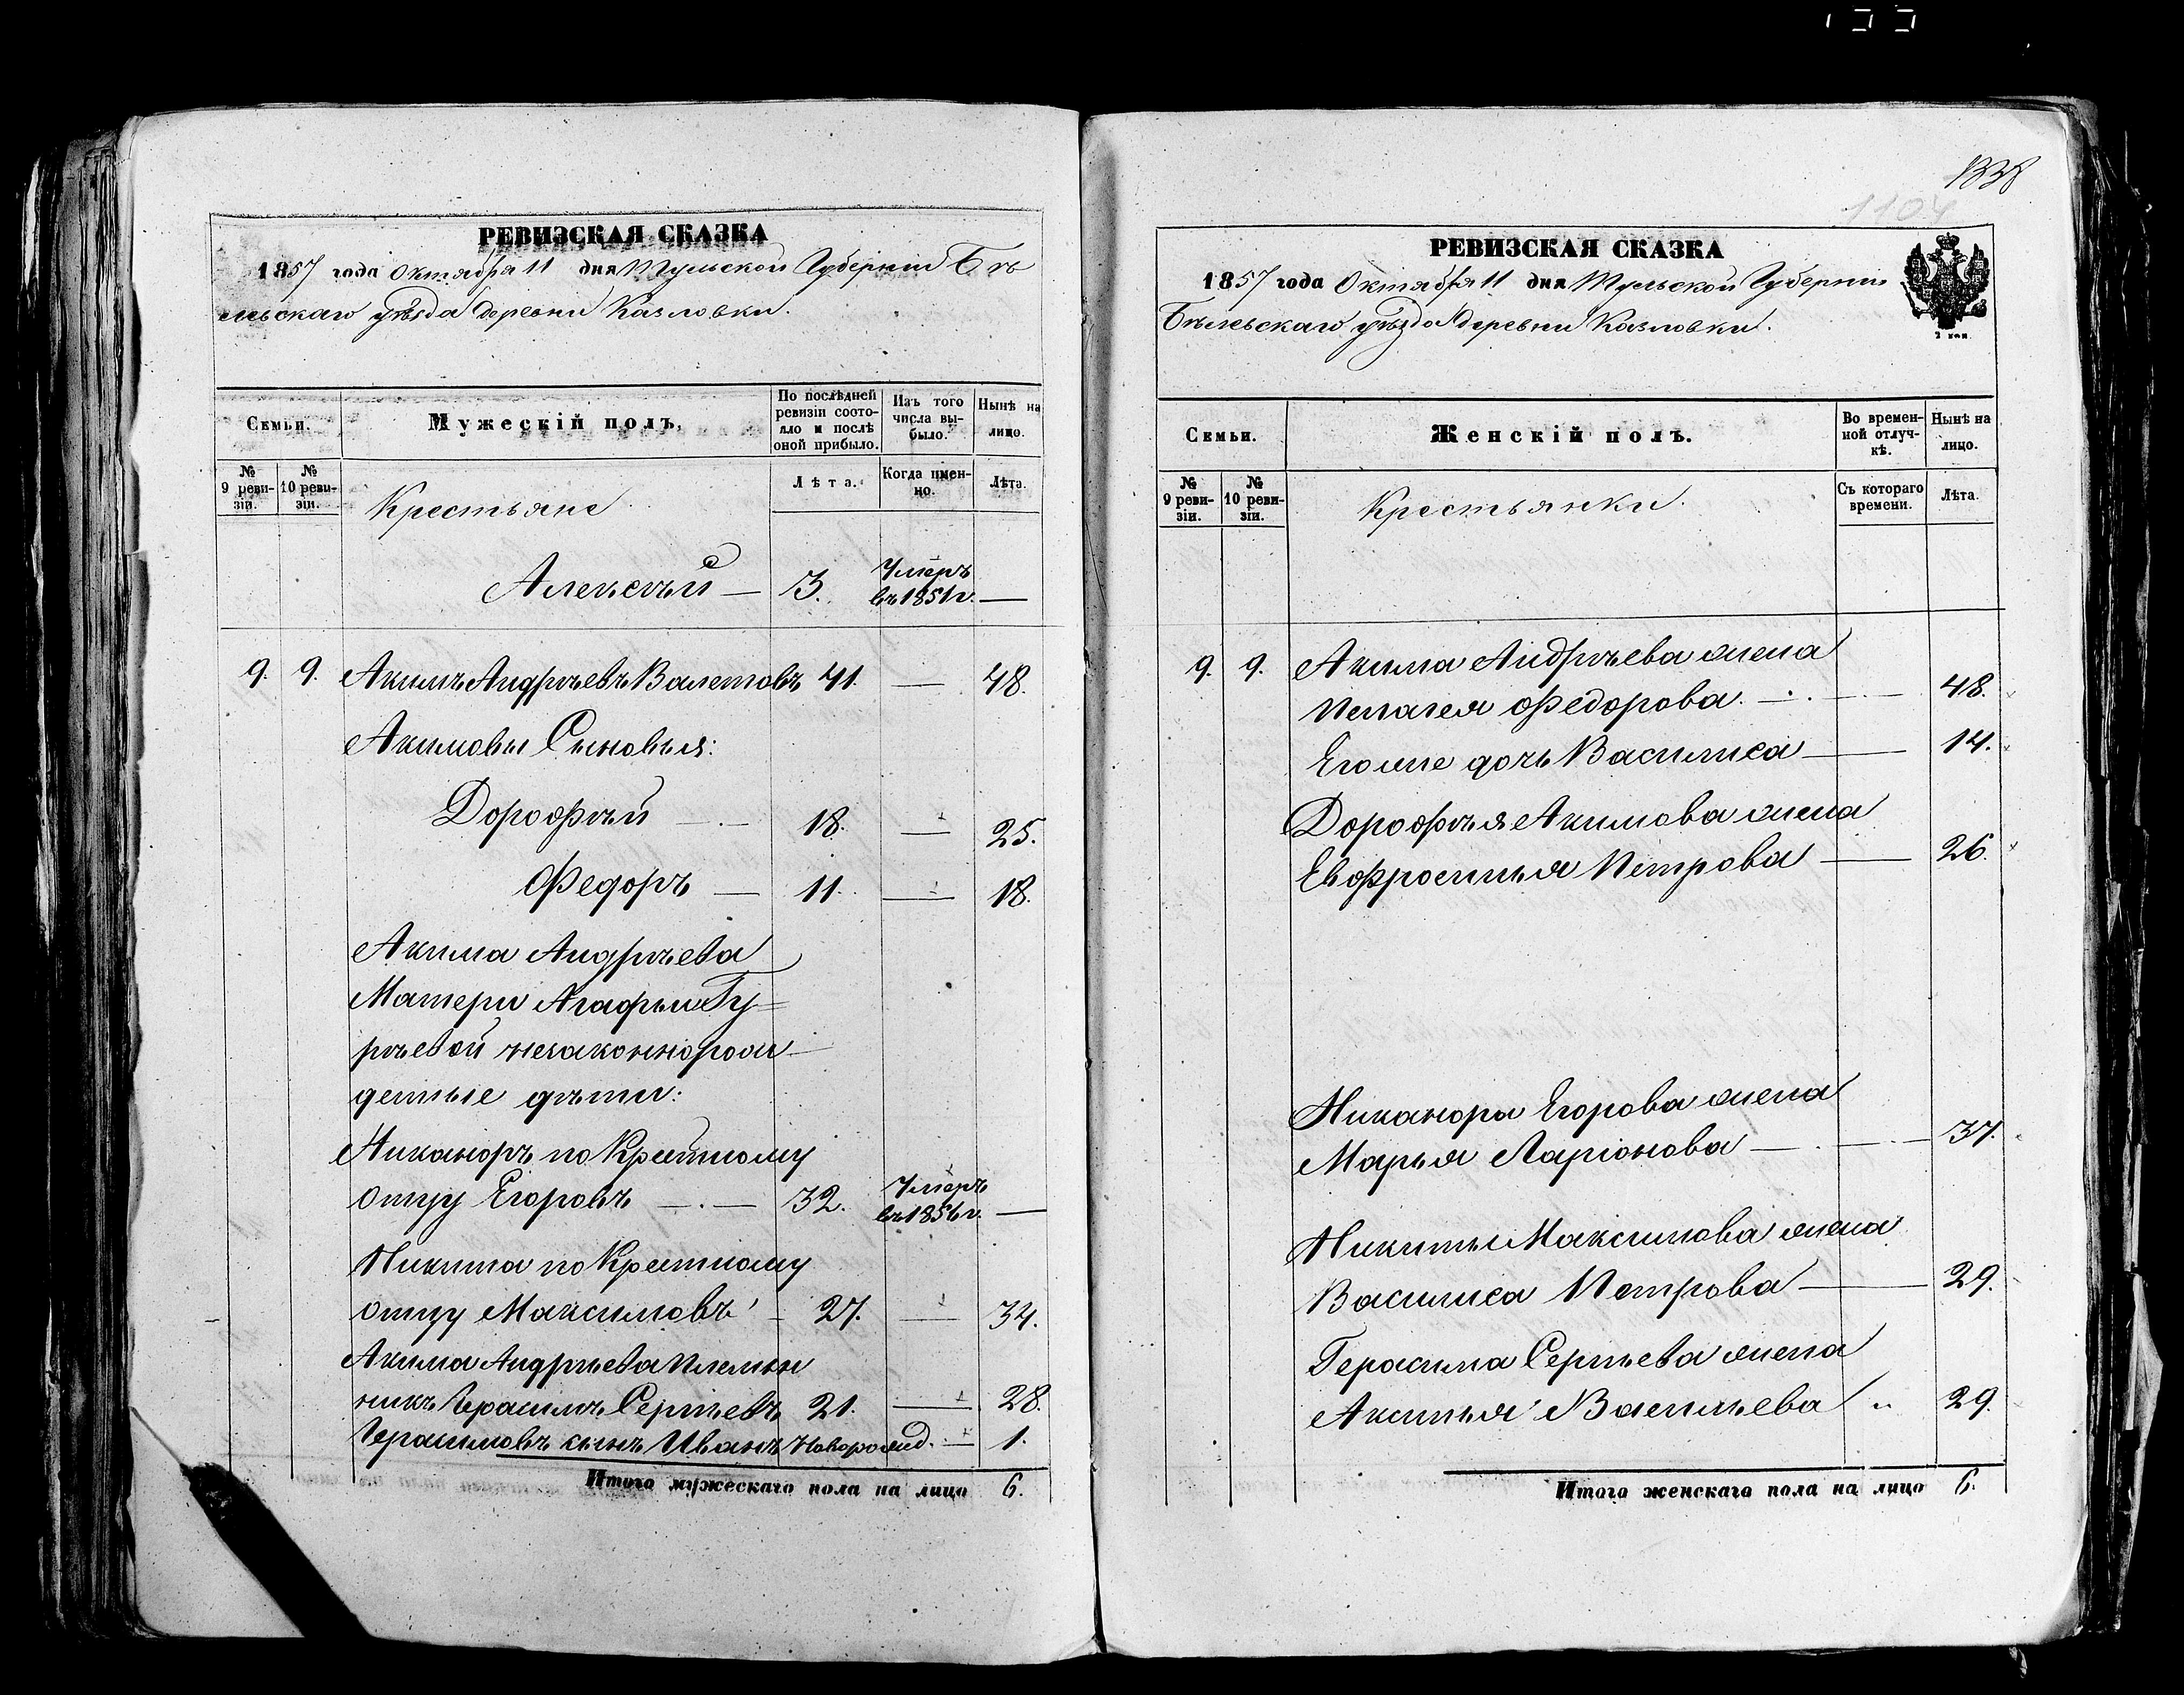 1838
1104
РЕВИЗСКАЯ СКАЗКА
1857 года Октября 11 дня Тульской Губерніи Бѣ
левскаго уѣзда деревни Казловки.
Семьи.
Мужескій полъ.
По послѣдней ревизіи состояло и послѣ оной прибыло.
Изъ того числа выбыло.
Нынѣ на лицо.
№ 9 ревизіи.
№ 10 ревизіи.
Крестьяне
Лѣта.
Когда именно.
Лѣта.
Алексѣй — 3. Умеръ въ 1851 г. —
9. 9. Акимъ Андрѣевъ Валетовъ 41. — 48.
Акимовы Сыновья:
Дорофѣй — 18. — 25.
Федоръ — 11. — 18.
Акима Андрѣева
Матери Агафьи Гу=
рѣевой незаконнорож
денные дѣти:
Никаноръ по Крестному
отцу Егоровъ — 32. Умеръ въ 1856 г. —
Никита по Крестному
отцу Максимовъ — 27. — 34.
Акима Андрѣева племян
никъ Герасимъ Сергѣевъ 21. — 28.
Герасимовъ сынъ Иванъ Новорожд. — 1.
Итого мужескаго пола на лицо 6.
РЕВИЗСКАЯ СКАЗКА
1857 года Октября 11 дня Тульской Губерніи
Бѣлевскаго уѣзда деревни Казловки.
2 коп.
Семьи.
Женскій полъ.
Во временной отлучкѣ.
Нынѣ на лицо.
№ 9 ревизіи.
№ 10 ревизіи.
Крестьянки.
Съ котораго времени.
Лѣта.
9. 9. Акима Андрѣева жена
Пелагея Федорова — 48.
Его же дочь Василиса — 14.
Дорофѣя Акимова жена
Евфросинья Петрова — 26.
Никанора Егорова жена
Марья Ларіонова — 37.
Никиты Максимова жена
Василиса Петрова — 29.
Герасима Сергѣева жена
Аксинья Васильева „ 29.
Итого женскаго пола на лицо 6.